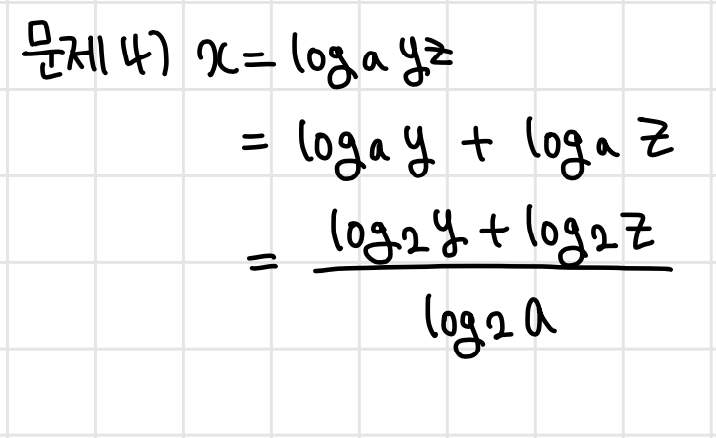 문제 4) x = log_a yz
= log_a y + log_a z
= \frac{log_2 y + log_2 z}{log_2 a}